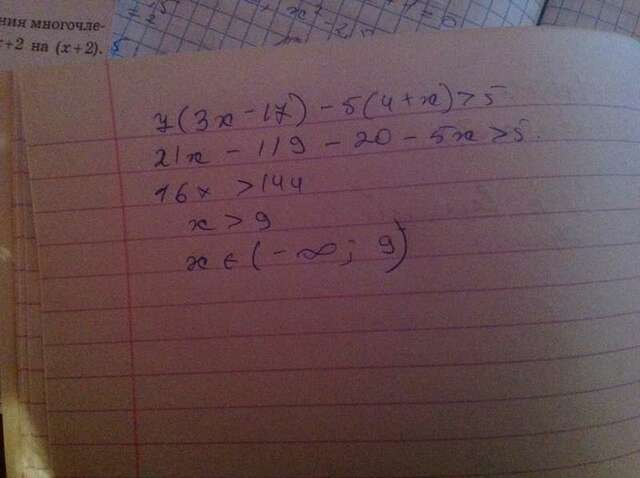 ния многочле-
x+2 на (x+2).
7(3x-17)-5(4+x)>5
21x-119-20-5x>5.
16x>144
x>9
x∈(-∞; 9)